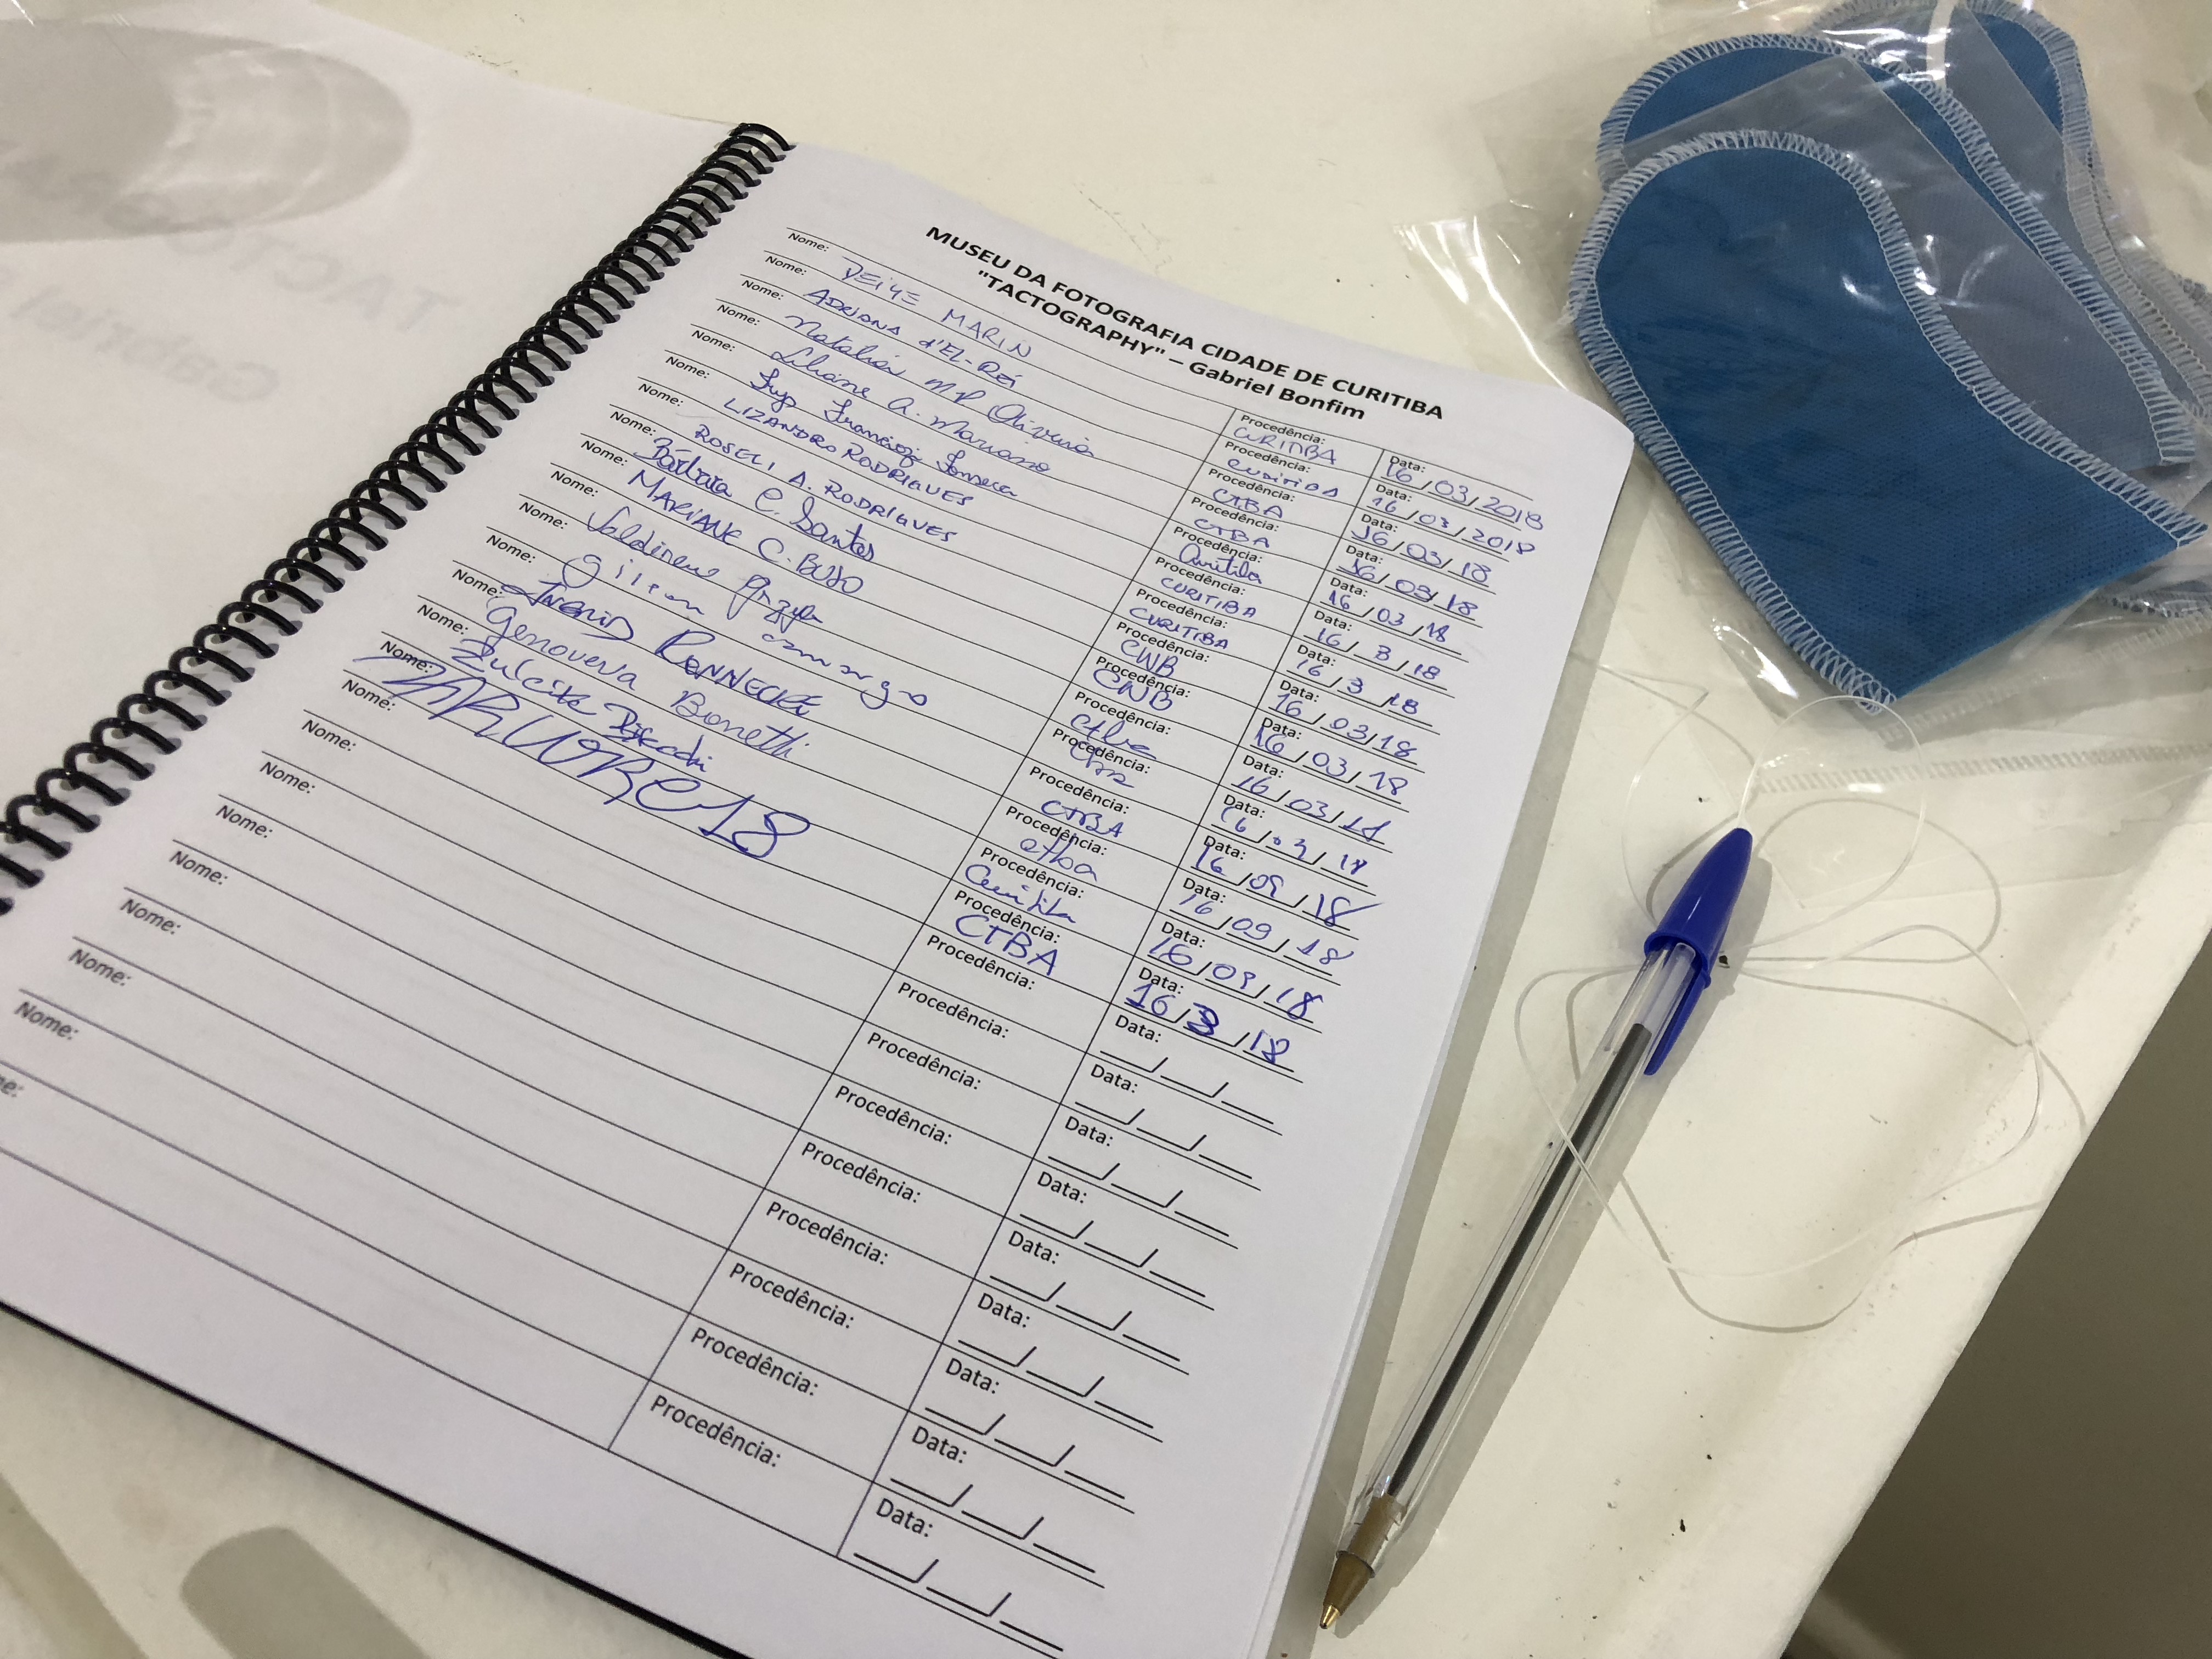 MUSEU DA FOTOGRAFIA CIDADE DE CURITIBA
"TACTOGRAPHY" – Gabriel Bonfim
Nome: MARIN Procedência: CURITIBA Data: 16/03/2018
Nome: ADRIANA d'EL-REI Procedência: CURITIBA Data: 16/03/2018
Nome: Natalia MP Oliveira Procedência: CTBA Data: 16/03/18
Nome: Liliane A. Mariano Procedência: CTBA Data: 16/03/18
Nome: Fonseca Procedência: Curitiba Data: 16/03/18
Nome: LIZANDRO RODRIGUES Procedência: CURITIBA Data: 16/3/18
Nome: ROSELI A. RODRIGUES Procedência: CURITIBA Data: 16/3/18
Nome: Bárbara C. Santos Procedência: CWB Data: 16/03/18
Nome: MARIANE C. BUSO Procedência: CWB Data: 16/03/18
Nome: Procedência: Ctba Data: 16/03/18
Nome: Gilson camargo Procedência: Data:
Nome: Procedência: CTBA Data:
Nome: Genoveva Bonetti Procedência: ctba Data:
Nome: Procedência: Curitiba Data: 16/03/18
Nome: Procedência: CTBA Data: 16/3/18
Nome: Procedência: Data: __/__/__
Nome: Procedência: Data: __/__/__
Nome: Procedência: Data: __/__/__
Nome: Procedência: Data: __/__/__
Nome: Procedência: Data: __/__/__
Nome: Procedência: Data: __/__/__
Nome: Procedência: Data: __/__/__
Procedência: Data: __/__/__
Data: __/__/__